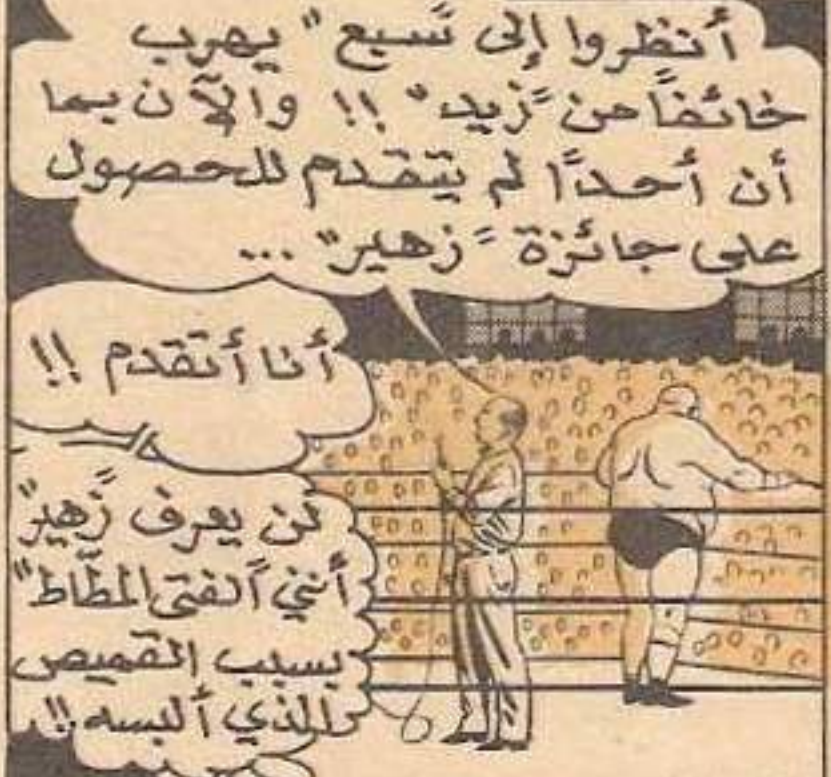 أنظروا إلى "سبع" يهرب
خائفاً من "زيد" !! والآن بما
أن أحدًا لم يتقدم للحصول
على جائزة "زهير" ...
أنا أتقدم !!
لن يعرف "زهير"
أنني "الفتى المطّاط"
بسبب القميص
الذي ألبسه !!